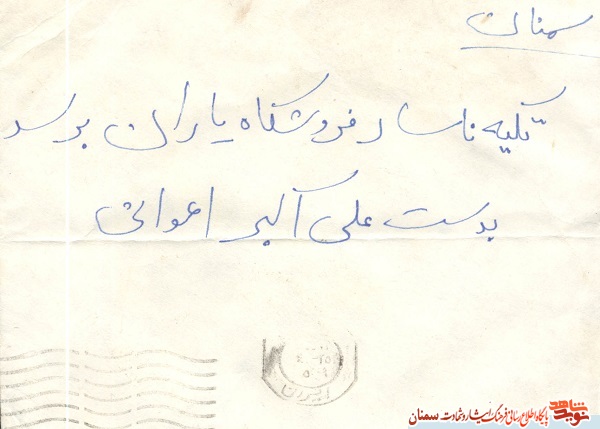 سمنان
تکیه ناسار فروشگاه یاران برسد
بدست علی اکبر اعوانی
ایران
نوید شاهد
پایگاه اطلاع رسانی فرهنگ ایثار و شهادت سمنان